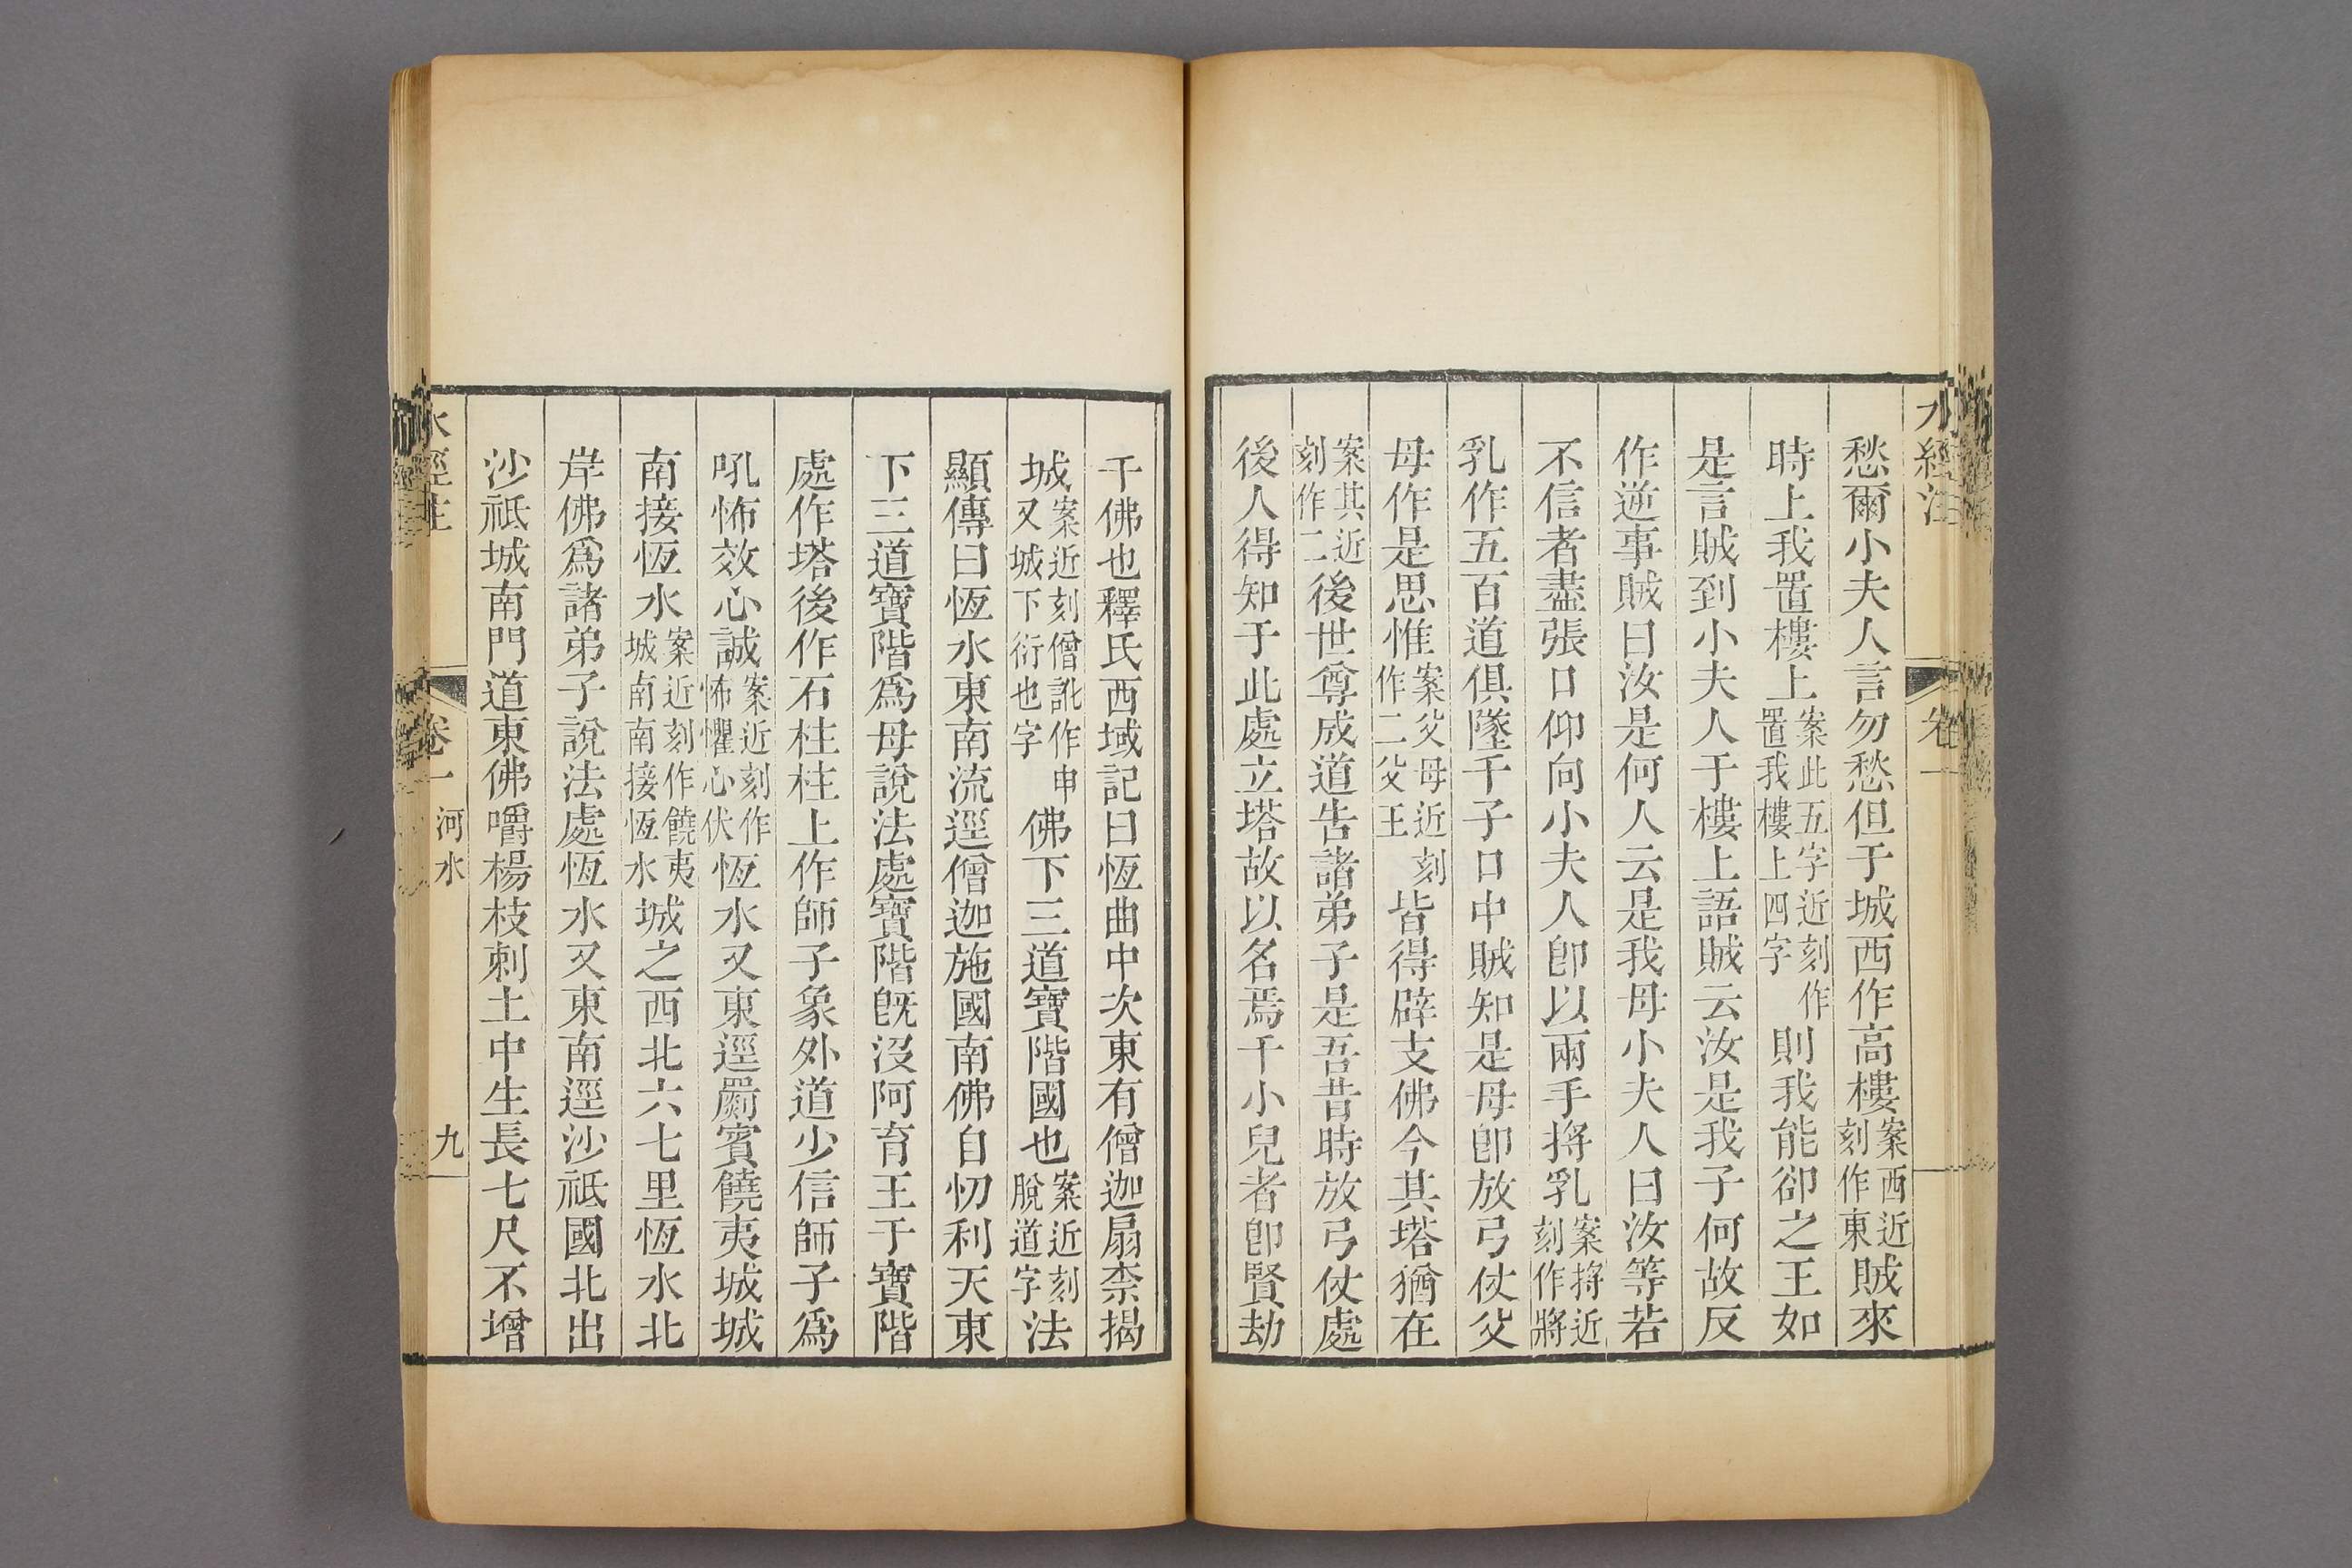 水經注
卷一
愁爾小夫人言勿愁但于城西作高樓案西近刻作東賊來
時上我置樓上案此五字近刻作置我樓上四字則我能卻之王如
是言賊到小夫人于樓上語賊云汝是我子何故反
作逆事賊曰汝是何人云是我母小夫人曰汝等若
不信者盡張口仰向小夫人卽以兩手捋乳案捋近刻作將
乳作五百道俱墜千子口中賊知是母卽放弓仗父
母作是思惟案父母近刻作二父王皆得辟支佛今其塔猶在
案其近刻作二後世尊成道告諸弟子是吾昔時放弓仗處
後人得知于此處立塔故以名焉千小兒者卽賢劫
千佛也釋氏西域記曰恆曲中次東有僧迦扇柰揭
城案近刻僧訛作申又城下衍也字佛下三道寶階國也案近刻脫道字法
顯傳曰恆水東南流逕僧迦施國南佛自忉利天東
下三道寶階爲母說法處寶階旣沒阿育王于寶階
處作塔後作石柱柱上作師子象外道少信師子爲
吼怖效心誠案近刻作怖懼心伏恆水又東逕罽賓饒夷城城
南接恆水案近刻作饒夷城南南接恆水城之西北六七里恆水北
岸佛爲諸弟子說法處恆水又東南逕沙祗國北出
沙祗城南門道東佛嚼楊枝刺土中生長七尺不增
水經注
卷一 河水
九